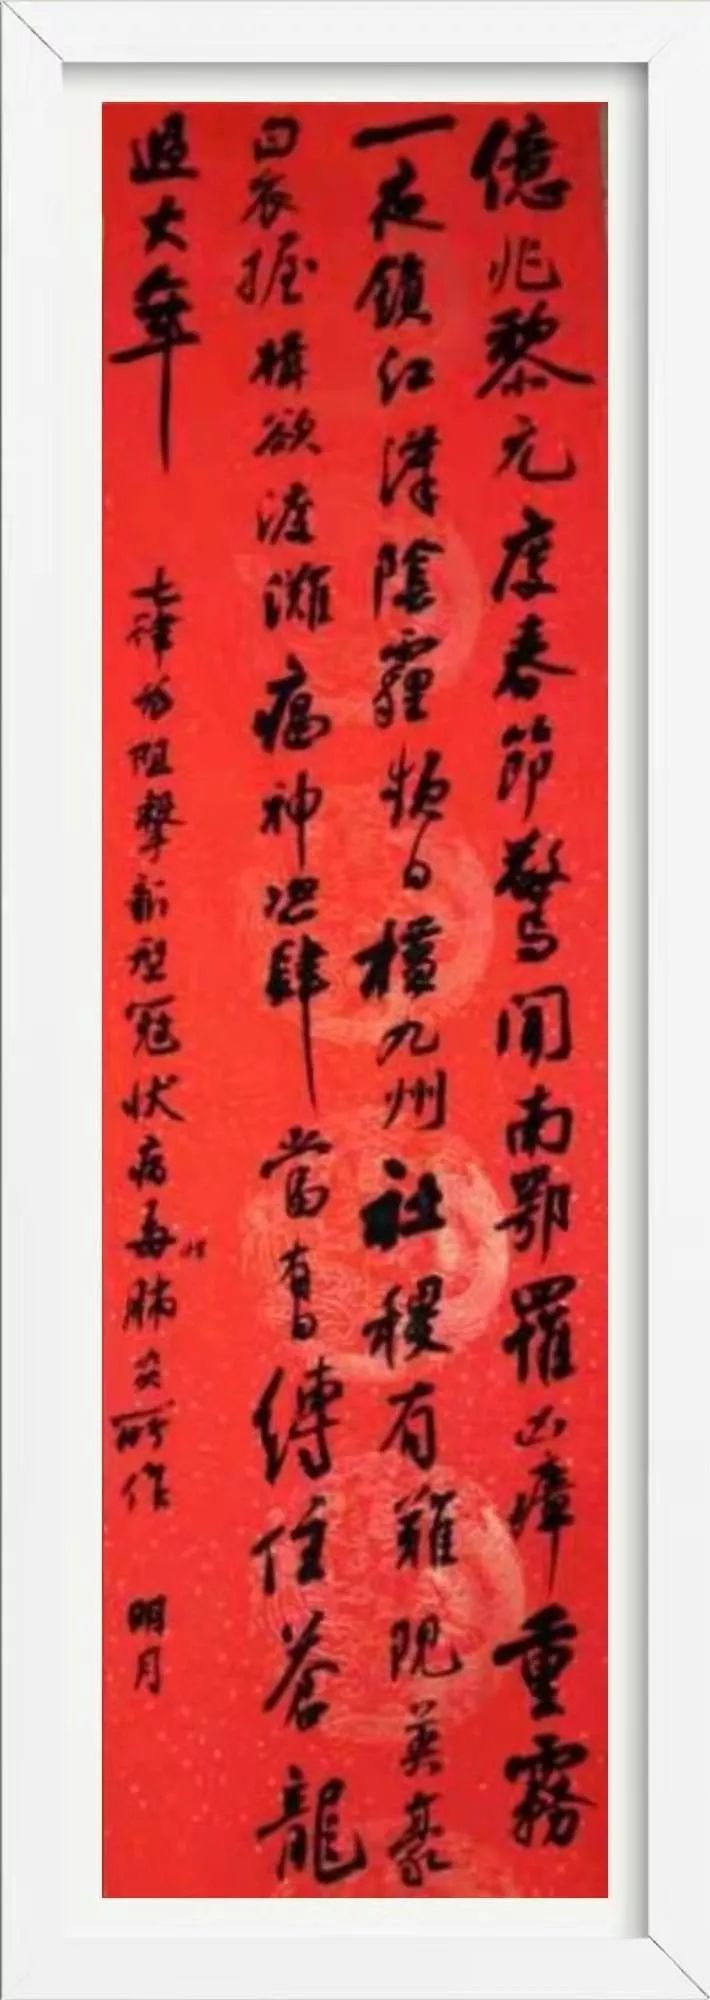 億兆黎元度春節驚聞南鄂罹凶瘴重霧
一夜鎖江漢陰霾頻日橫九州社稷有難現英豪
白衣握楫欲渡灘瘟神恣肆當有時縛住蒼龍
過大年
七律為阻擊新型冠狀病毒性肺炎所作
明月